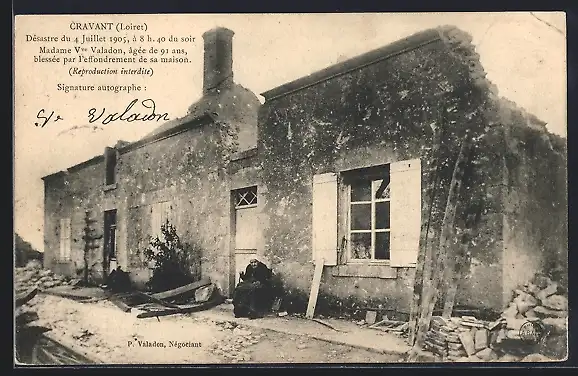 CRAVANT (Loiret)
Désastre du 4 Juillet 1905, à 8 h. 40 du soir
Madame Vve Valadon, âgée de 91 ans,
blessée par l'effondrement de sa maison.
(Reproduction interdite)
Signature autographe :
Ve Valadon
P. Valadon, Négociant